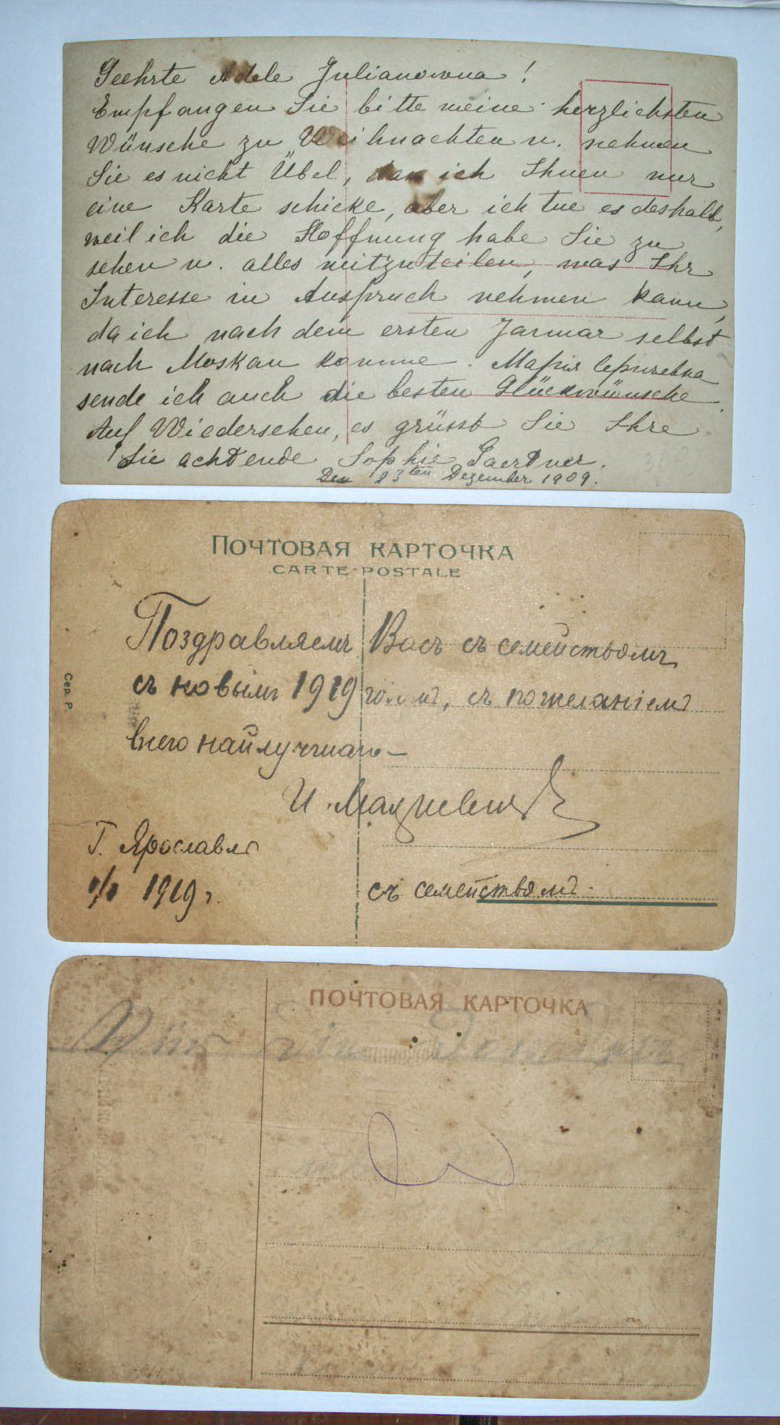 Geehrte Adele Julianowna!
Empfangen Sie bitte meine herzlichsten
Wünsche zu Weihnachten u. nehmen
Sie es nicht Übel, das ich Ihnen nur
eine Karte schicke, aber ich tue es deshalb,
weil ich die Hoffnung habe Sie zu
sehen u. alles mitzuteilen, was Ihr
Interesse in Anspruch nehmen kann,
da ich nach dem ersten Januar selbst
nach Moskau komme. Марiя
sende ich auch die besten Glückwünsche.
Auf Wiedersehen, es grüsst Sie Ihre
Sie achtende Sophie Gaertner.
Den 13ten Dezember 1909.
ПОЧТОВАЯ КАРТОЧКА
CARTE-POSTALE
Поздравляемъ Васъ съ семействомъ
съ новымъ 1919 годомъ, съ пожеланiемъ
всего наилучшаго –
И.
Г. Ярославль
1/I 1919 г.
съ семействомъ.
Сер. Р.
ПОЧТОВАЯ КАРТОЧКА